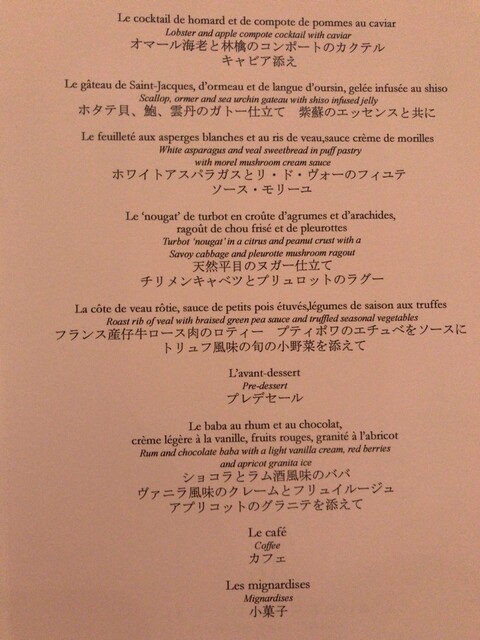 Le cocktail de homard et de compote de pommes au caviar
Lobster and apple compote cocktail with caviar
オマール海老と林檎のコンポートのカクテル
キャビア添え
Le gâteau de Saint-Jacques, d'ormeau et de langue d'oursin, gelée infusée au shiso
Scallop, ormer and sea urchin gateau with shiso infused jelly
ホタテ貝、鮑、雲丹のガトー仕立て　紫蘇のエッセンスと共に
Le feuilleté aux asperges blanches et au ris de veau,sauce crème de morilles
White asparagus and veal sweetbread in puff pastry
with morel mushroom cream sauce
ホワイトアスパラガスとリ・ド・ヴォーのフィユテ
ソース・モリーユ
Le 'nougat' de turbot en croûte d'agrumes et d'arachides,
ragoût de chou frisé et de pleurottes
Turbot 'nougat' in a citrus and peanut crust with a
Savoy cabbage and pleurotte mushroom ragout
天然平目のヌガー仕立て
チリメンキャベツとプリュロットのラグー
La côte de veau rôtie, sauce de petits pois étuvés,légumes de saison aux truffes
Roast rib of veal with braised green pea sauce and truffled seasonal vegetables
フランス産仔牛ロース肉のロティー　プティポワのエチュベをソースに
トリュフ風味の旬の小野菜を添えて
L'avant-dessert
Pre-dessert
プレデセール
Le baba au rhum et au chocolat,
crème légère à la vanille, fruits rouges, granité à l'abricot
Rum and chocolate baba with a light vanilla cream, red berries
and apricot granita ice
ショコラとラム酒風味のババ
ヴァニラ風味のクレームとフリュイルージュ
アプリコットのグラニテを添えて
Le café
Coffee
カフェ
Les mignardises
Mignardises
小菓子